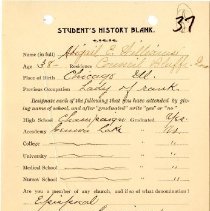 37
STUDENT'S HISTORY BLANK.
Name (in full) Abigail E.
Age 38 - Residence Council Bluffs
Place of Birth Chicago Ill.
Previous Occupation Lady of
Designate each of the following that you have attended by giv-
ing name of school, and after "graduated" write "yes" or "no"
High School Champaign Graduated Yes.
Academy Lake " Yes
College " "
University " "
Medical School " "
Normal School " "
Are you a member of any church, and if so what denomination?
Episcopal